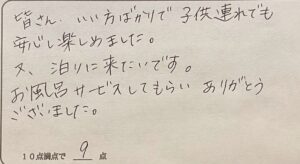 皆さん、いい方ばかりで子供連れでも
安心し楽しめました。
又、泊りに来たいです。
お風呂サービスしてもらい ありがとう
ございました。
10点満点で 9 点